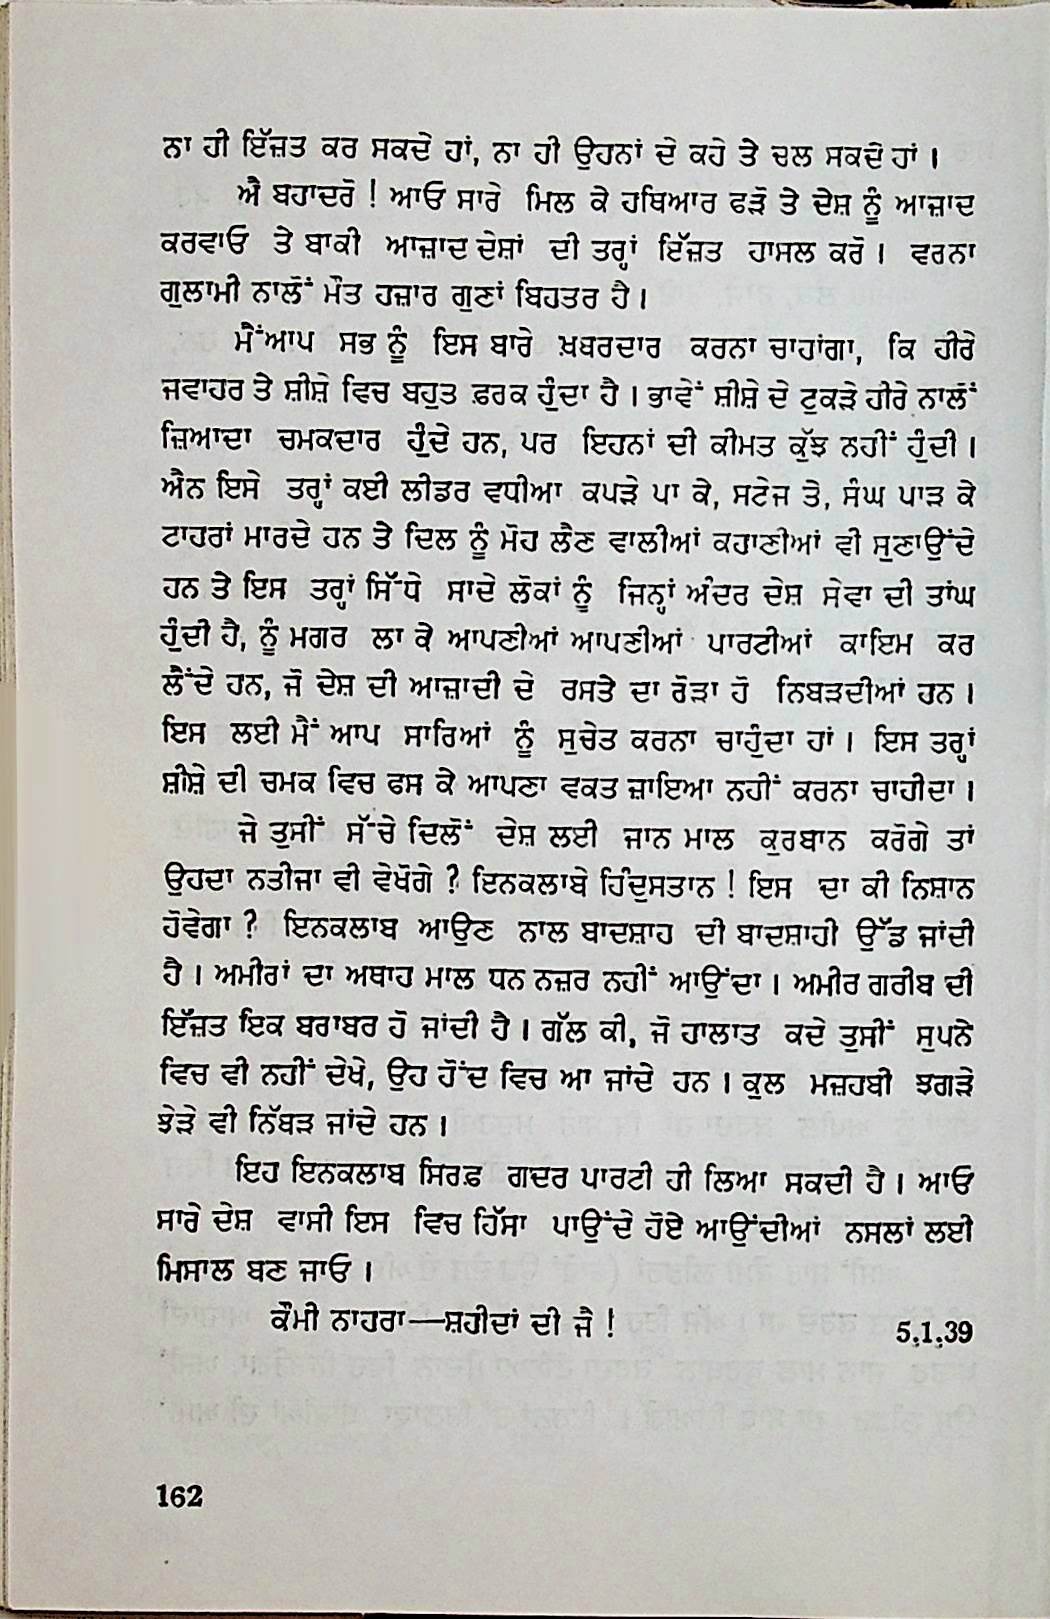 ਨਾ ਹੀ ਇੱਜ਼ਤ ਕਰ ਸਕਦੇ ਹਾਂ, ਨਾ ਹੀ ਉਹਨਾਂ ਦੇ ਕਹੇ ਤੇ ਚਲ ਸਕਦੇ ਹਾਂ ।
ਐ ਬਹਾਦਰੋ ! ਆਓ ਸਾਰੇ ਮਿਲ ਕੇ ਹਥਿਆਰ ਫੜੋ ਤੇ ਦੇਸ਼ ਨੂੰ ਆਜ਼ਾਦ
ਕਰਵਾਓ ਤੇ ਬਾਕੀ ਆਜ਼ਾਦ ਦੇਸ਼ਾਂ ਦੀ ਤਰ੍ਹਾਂ ਇੱਜ਼ਤ ਹਾਸਲ ਕਰੋ । ਵਰਨਾ
ਗੁਲਾਮੀ ਨਾਲੋਂ ਮੌਤ ਹਜ਼ਾਰ ਗੁਣਾਂ ਬਿਹਤਰ ਹੈ ।
ਮੈਂਆਪ ਸਭ ਨੂੰ ਇਸ ਬਾਰੇ ਖ਼ਬਰਦਾਰ ਕਰਨਾ ਚਾਹਾਂਗਾ, ਕਿ ਹੀਰੇ
ਜਵਾਹਰ ਤੇ ਸ਼ੀਸ਼ੇ ਵਿਚ ਬਹੁਤ ਫ਼ਰਕ ਹੁੰਦਾ ਹੈ । ਭਾਵੇਂ ਸ਼ੀਸ਼ੇ ਦੇ ਟੁਕੜੇ ਹੀਰੇ ਨਾਲੋਂ
ਜ਼ਿਆਦਾ ਚਮਕਦਾਰ ਹੁੰਦੇ ਹਨ, ਪਰ ਇਹਨਾਂ ਦੀ ਕੀਮਤ ਕੁੱਝ ਨਹੀਂ ਹੁੰਦੀ ।
ਐਨ ਇਸੇ ਤਰ੍ਹਾਂ ਕਈ ਲੀਡਰ ਵਧੀਆ ਕਪੜੇ ਪਾ ਕੇ, ਸਟੇਜ ਤੇ, ਸੰਘ ਪਾੜ ਕੇ
ਟਾਹਰਾਂ ਮਾਰਦੇ ਹਨ ਤੇ ਦਿਲ ਨੂੰ ਮੋਹ ਲੈਣ ਵਾਲੀਆਂ ਕਹਾਣੀਆਂ ਵੀ ਸੁਣਾਉਂਦੇ
ਹਨ ਤੇ ਇਸ ਤਰ੍ਹਾਂ ਸਿੱਧੇ ਸਾਦੇ ਲੋਕਾਂ ਨੂੰ ਜਿਨ੍ਹਾਂ ਅੰਦਰ ਦੇਸ਼ ਸੇਵਾ ਦੀ ਤਾਂਘ
ਹੁੰਦੀ ਹੈ, ਨੂੰ ਮਗਰ ਲਾ ਕੇ ਆਪਣੀਆਂ ਆਪਣੀਆਂ ਪਾਰਟੀਆਂ ਕਾਇਮ ਕਰ
ਲੈਂਦੇ ਹਨ, ਜੋ ਦੇਸ਼ ਦੀ ਆਜ਼ਾਦੀ ਦੇ ਰਸਤੇ ਦਾ ਰੋੜਾ ਹੋ ਨਿਬੜਦੀਆਂ ਹਨ ।
ਇਸ ਲਈ ਮੈਂ ਆਪ ਸਾਰਿਆਂ ਨੂੰ ਸੁਚੇਤ ਕਰਨਾ ਚਾਹੁੰਦਾ ਹਾਂ । ਇਸ ਤਰ੍ਹਾਂ
ਸ਼ੀਸ਼ੇ ਦੀ ਚਮਕ ਵਿਚ ਫਸ ਕੇ ਆਪਣਾ ਵਕਤ ਜ਼ਾਇਆ ਨਹੀਂ ਕਰਨਾ ਚਾਹੀਦਾ ।
ਜੇ ਤੁਸੀਂ ਸੱਚੇ ਦਿਲੋਂ ਦੇਸ਼ ਲਈ ਜਾਨ ਮਾਲ ਕੁਰਬਾਨ ਕਰੋਗੇ ਤਾਂ
ਉਹਦਾ ਨਤੀਜਾ ਵੀ ਵੇਖੋਗੇ ? ਇਨਕਲਾਬੇ ਹਿੰਦੁਸਤਾਨ ! ਇਸ ਦਾ ਕੀ ਨਿਸ਼ਾਨ
ਹੋਵੇਗਾ ? ਇਨਕਲਾਬ ਆਉਣ ਨਾਲ ਬਾਦਸ਼ਾਹ ਦੀ ਬਾਦਸ਼ਾਹੀ ਉੱਡ ਜਾਂਦੀ
ਹੈ । ਅਮੀਰਾਂ ਦਾ ਅਥਾਹ ਮਾਲ ਧਨ ਨਜ਼ਰ ਨਹੀਂ ਆਉਂਦਾ । ਅਮੀਰ ਗਰੀਬ ਦੀ
ਇੱਜ਼ਤ ਇਕ ਬਰਾਬਰ ਹੋ ਜਾਂਦੀ ਹੈ । ਗੱਲ ਕੀ, ਜੋ ਹਾਲਾਤ ਕਦੇ ਤੁਸੀਂ ਸੁਪਨੇ
ਵਿਚ ਵੀ ਨਹੀਂ ਦੇਖੇ, ਉਹ ਹੋਂਦ ਵਿਚ ਆ ਜਾਂਦੇ ਹਨ । ਕੁਲ ਮਜ਼ਹਬੀ ਝਗੜੇ
ਝੇੜੇ ਵੀ ਨਿੱਬੜ ਜਾਂਦੇ ਹਨ ।
ਇਹ ਇਨਕਲਾਬ ਸਿਰਫ਼ ਗਦਰ ਪਾਰਟੀ ਹੀ ਲਿਆ ਸਕਦੀ ਹੈ । ਆਓ
ਸਾਰੇ ਦੇਸ਼ ਵਾਸੀ ਇਸ ਵਿਚ ਹਿੱਸਾ ਪਾਉਂਦੇ ਹੋਏ ਆਉਂਦੀਆਂ ਨਸਲਾਂ ਲਈ
ਮਿਸਾਲ ਬਣ ਜਾਓ ।
ਕੌਮੀ ਨਾਹਰਾ—ਸ਼ਹੀਦਾਂ ਦੀ ਜੈ ! 5.1.39
162